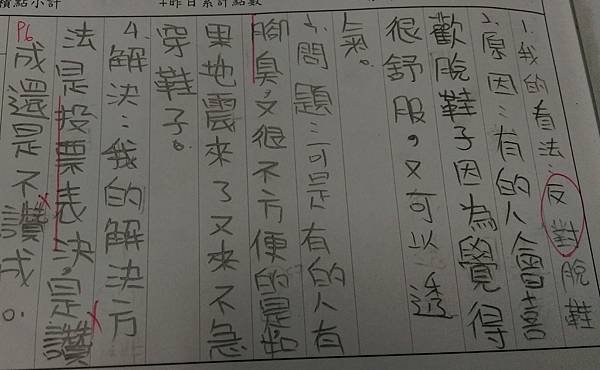 積點小計
+昨日累計點數
1.我的看法:反對脫鞋
2.原因:有的人會喜
歡脫鞋子因為覺得
很舒服,又可以透
氣。
3.問題:可是有的人有
腳臭,又很不方便的是如
果地震來了又來不急
穿鞋子。
4.解決:我的解決方
法是投票表決,是讚
成還是不讚成。
P6